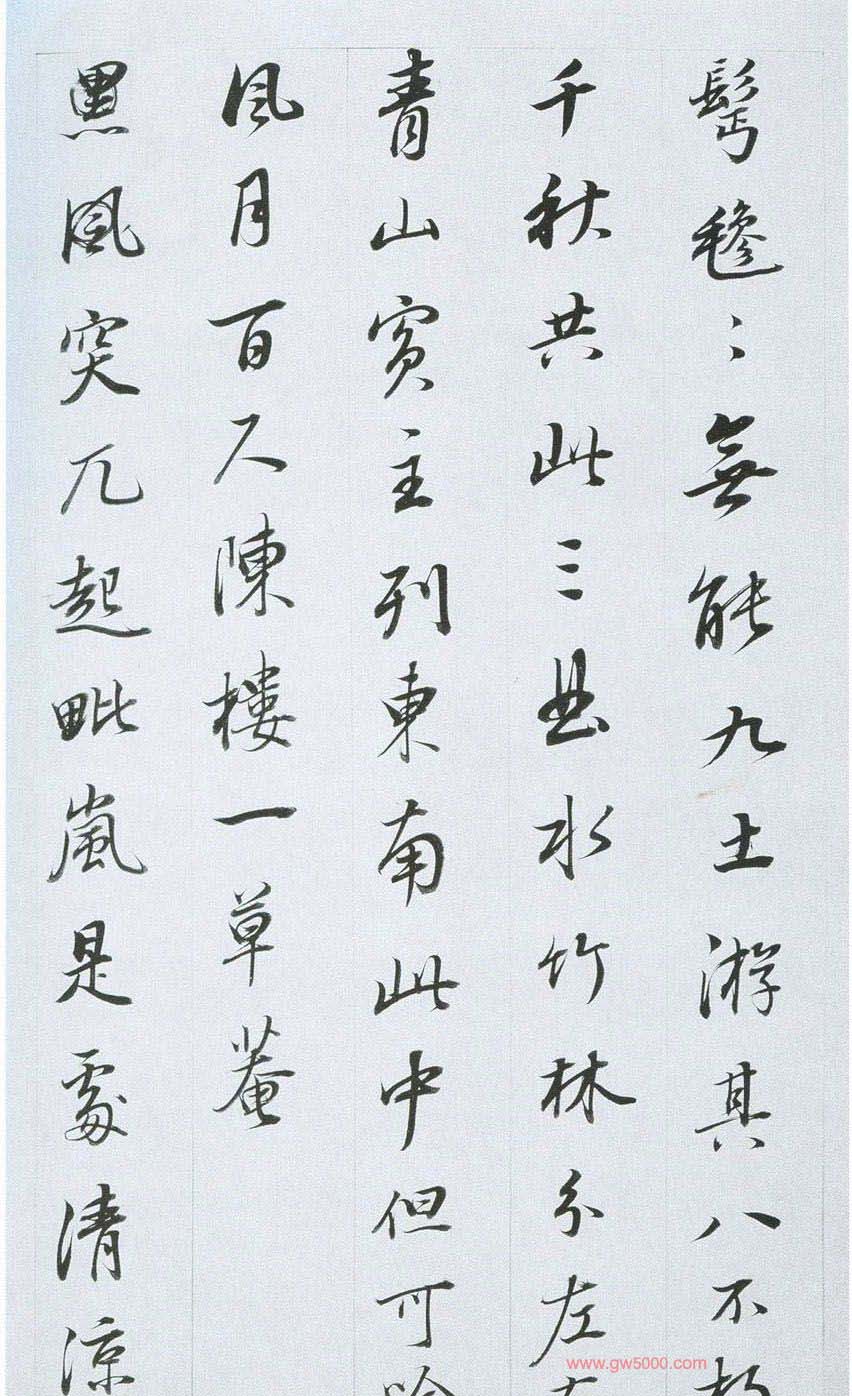 鬅毿〻無能九土游其八不
千秋共此三〻曲水竹林分左右
青山賓主列東南此中但可吟
風月百尺陳樓一草菴
黑風突兀起毗嵐是處清涼
www.gw5000.com